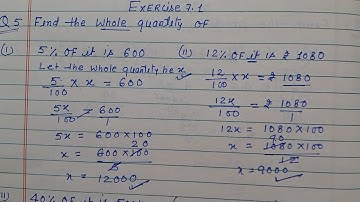 Exercise 7.1
Q.5 Find the whole quantity of
(i) 5% of it is 600
Let the whole quantity be x
5/100 × x = 600
5x/100 = 600/1
5x = 600×100
x = 600×100/5 20
x = 12000
(ii) 12% of it is ₹ 1080
12/100 × x = ₹ 1080
12x/100 = ₹ 1080/1
12x = 1080×100
x = 1080×100/12 90
x = 9000
40% of it is